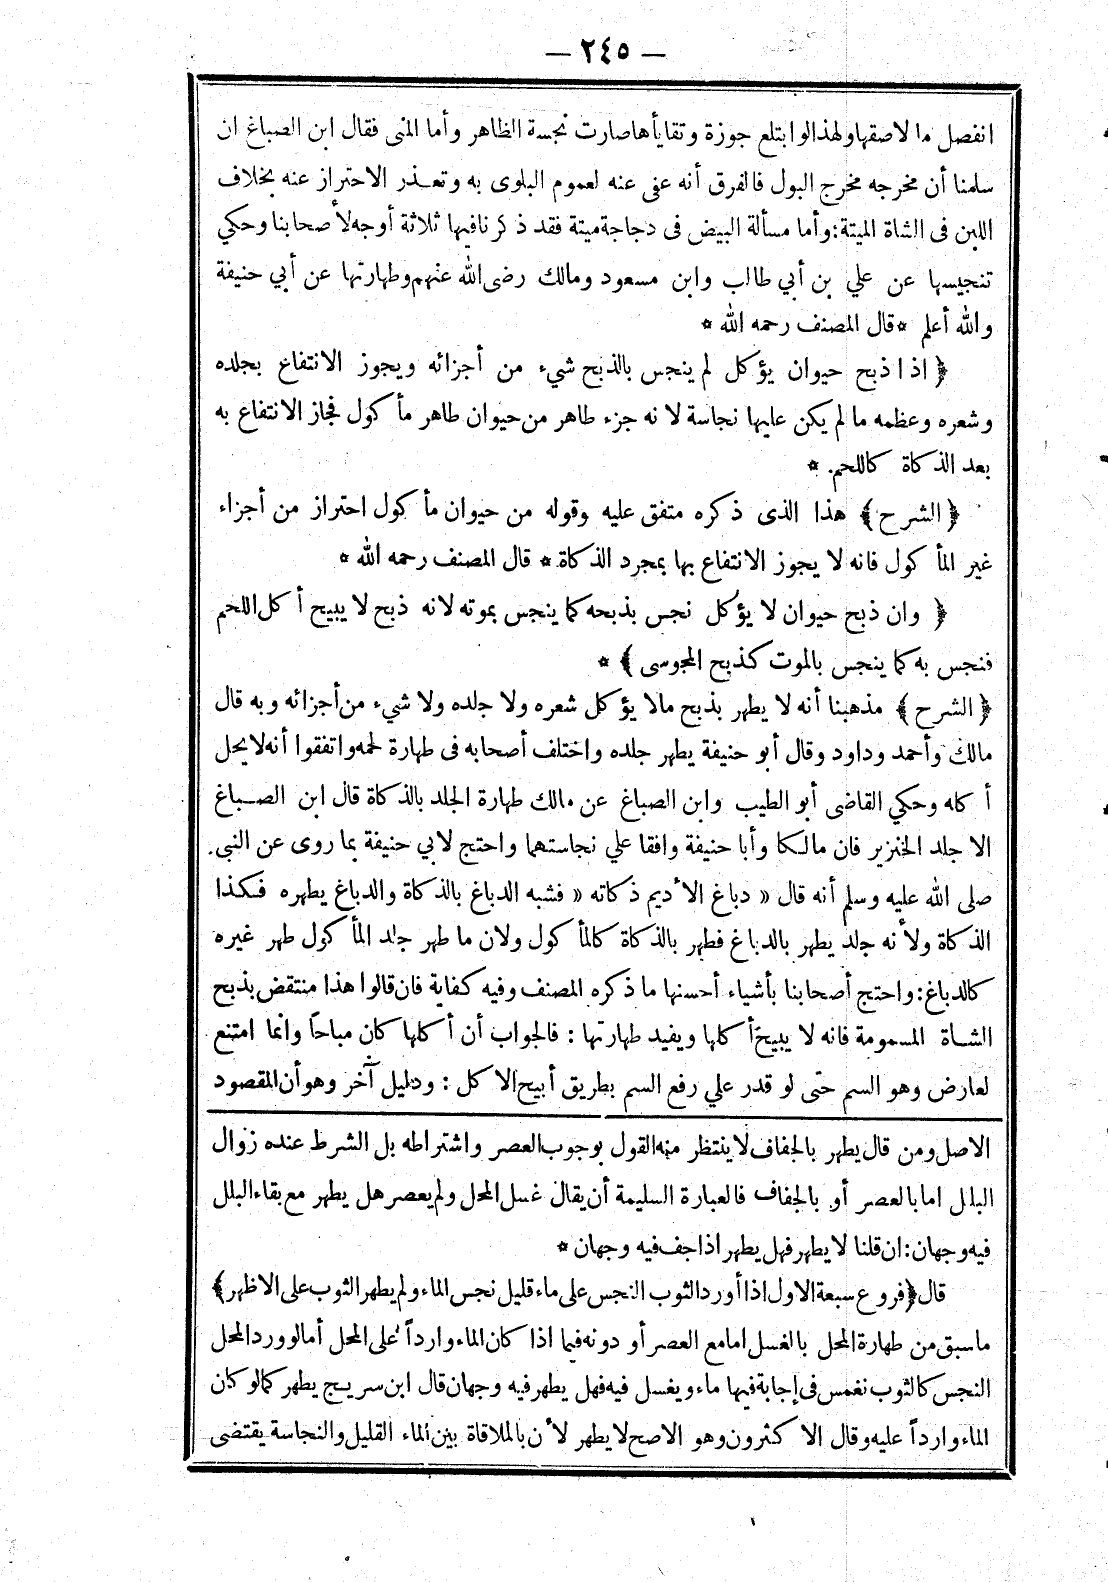 — ٢٤٥ —
انفصل ما لاصقها ولهذا لو ابتلع جوزة وتقايأها صارت نجسة الظاهر وأما المنى فقال ابن الصباغ ان
سلمنا أن مخرجه مخرج البول فالفرق أنه عفى عنه لعموم البلوى به وتعـذر الاحتراز عنه بخلاف
اللبن فى الشاة الميتة: وأما مسألة البيض فى دجاجة ميتة فقد ذكرنا فيها ثلاثة أوجه لأصحابنا وحكي
تنجيسها عن علي بن أبي طالب وابن مسعود ومالك رضى الله عنهم وطهارتها عن أبي حنيفة
والله أعلم * قال المصنف رحمه الله *
﴿ اذا ذبح حيوان يؤكل لم ينجس بالذبح شيء من أجزائه ويجوز الانتفاع بجلده
وشعره وعظمه ما لم يكن عليها نجاسة لانه جزء طاهر من حيوان طاهر مأكول فجاز الانتفاع به
بعد الذكاة كاللحم. *
﴿الشرح﴾ هذا الذى ذكره متفق عليه وقوله من حيوان مأكول احتراز من أجزاء
غير المأكول فانه لا يجوز الانتفاع بها بمجرد الذكاة * قال المصنف رحمه الله *
﴿ وان ذبح حيوان لا يؤكل نجس بذبحه كما ينجس بموته لانه ذبح لا يبيح أكل اللحم
فنجس به كما ينجس بالموت كذبح المجوسى ﴾ *
﴿الشرح﴾ مذهبنا أنه لا يطهر بذبح مالا يؤكل شعره ولا جلده ولا شيء من أجزائه وبه قال
مالك وأحمد وداود وقال أبو حنيفة يطهر جلده واختلف أصحابه فى طهارة لحمه واتفقوا أنه لا يحل
أكله وحكي القاضى أبو الطيب وابن الصباغ عن مالك طهارة الجلد بالذكاة قال ابن الصـباغ
الا جلد الخنزير فان مالكا وأبا حنيفة وافقا علي نجاستهما واحتج لابي حنيفة بما روى عن النبى
صلى الله عليه وسلم أنه قال « دباغ الأديم ذكاته « فشبه الدباغ بالذكاة والدباغ يطهره فكذا
الذكاة ولأنه جلد يطهر بالدباغ فطهر بالذكاة كالمأكول ولان ما طهر جلد المأكول طهر غيره
كالدباغ: واحتج أصحابنا بأشياء أحسنها ما ذكره المصنف وفيه كفاية فان قالوا هذا منتقض بذبح
الشـاة المسمومة فانه لا يبيح أكلها ويفيد طهارتها : فالجواب أن أكلها كان مباحاً وانما امتنع
لعارض وهو السم حتى لو قدر علي رفع السم بطريق أبيح الاكل : ودليل آخر وهو أن المقصود
الاصل ومن قال يطهر بالجفاف لا ينتظر منه القول بوجوب العصر واشتراطه بل الشرط عنده زوال
البلل اما بالعصر أو بالجفاف فالعبارة السليمة أن يقال غسل المحل ولم يعصر هل يطهر مع بقاء البلل
فيه وجهان: ان قلنا لا يطهر فهل يطهر اذا جف فيه وجهان *
قال ﴿فروع سبعة الاول اذا أورد الثوب النجس على ماء قليل نجس الماء ولم يطهر الثوب على الاظهر﴾
ما سبق من طهارة المحل بالغسل اما مع العصر أو دونه فيما اذا كان الماء وارداً على المحل أما لو ورد المحل
النجس كالثوب نغمس فى إجابة فيها ماء ويغسل فيه فهل يطهر فيه وجهان قال ابن سريج يطهر كما لو كان
الماء وارداً عليه وقال الاكثرون وهو الاصح لا يطهر لأن بالملاقاة بين الماء القليل والنجاسة يقتضى